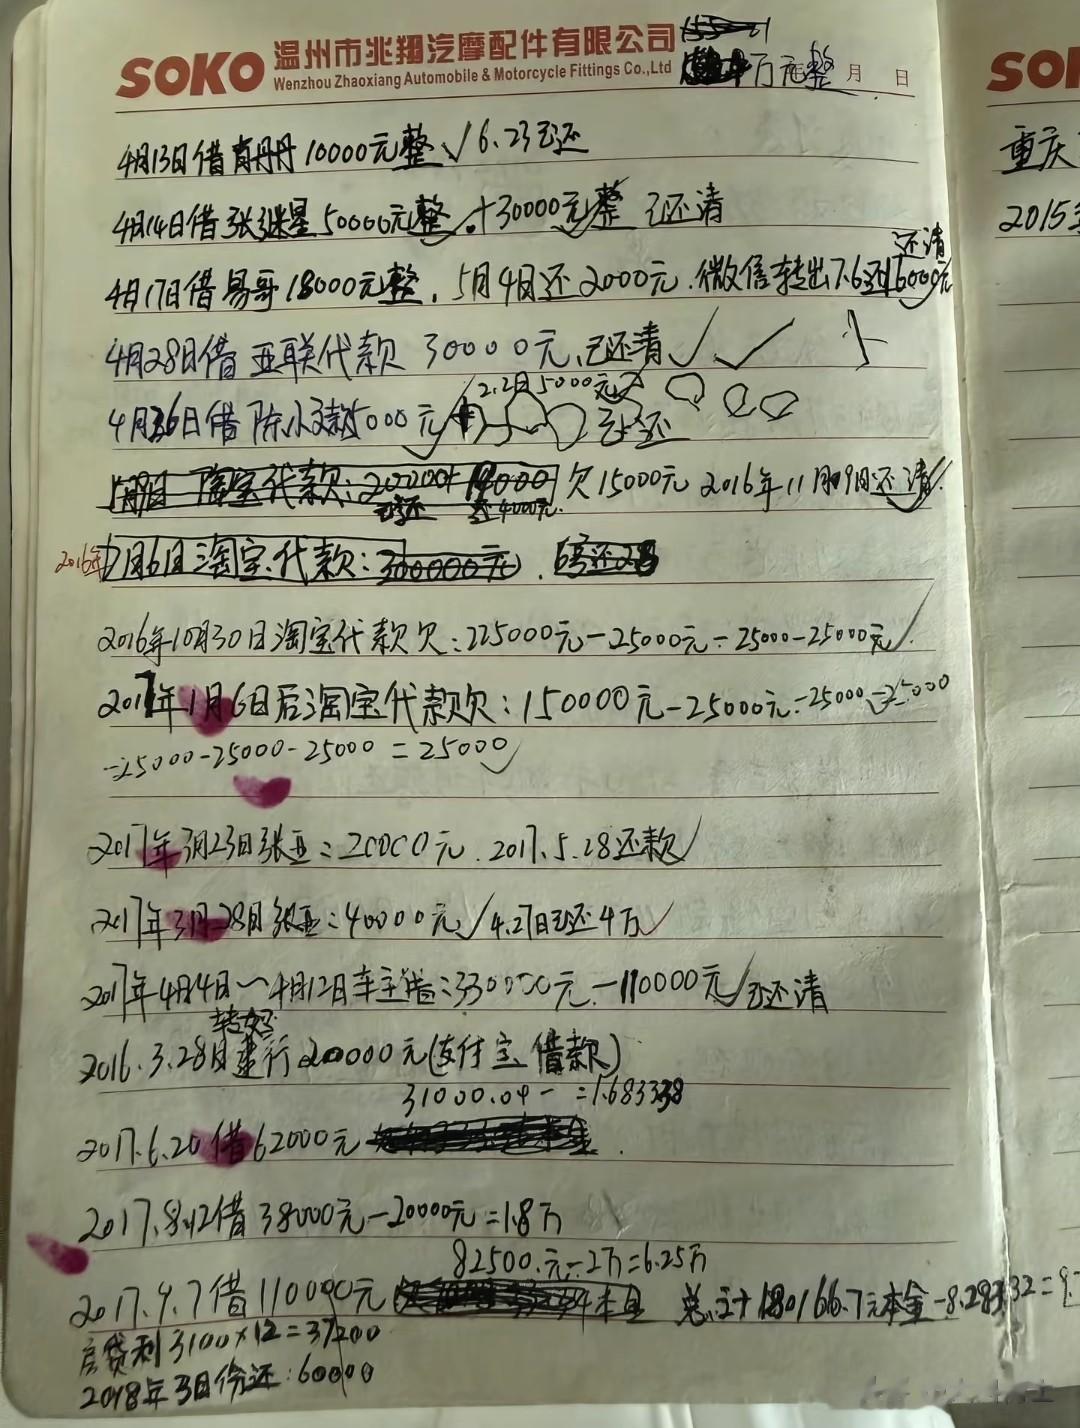 SOKO 温州市兆翔汽摩配件有限公司
Wenzhou Zhaoxiang Automobile & Motorcycle Fittings Co.,Ltd
万元整 月 日
4月13日借 丹丹 10000元整 √ 6.23已还
4月14日借 张继星 50000元整 + 30000元整 已还清
还清
4月17日借 易哥 18000元整, 5月4日还2000元.微信转出7.6还16000元
4月28日借 亚联代款 30000元,已还清
2.2日5000元
4月26日借 陈小 5000元 已还
淘宝代款: 欠15000元 2016年11月09日还清
已还 还4000元.
2016年7月6日淘宝代款:300000元.
2016年10月30日淘宝代款欠:225000元-25000元-25000-25000元
2017年1月6日后淘宝代款欠:150000元-25000元-25000-25000
-25000-25000-25000=25000
2017年3月23日张亚:20000元.2017.5.28还款
2017年3月28日张亚:40000元√4.27日已还4万
2017年4月4日~4月12日车主借:330000元-110000元 已还清
2016.3.28日建行20000元(支付宝借款)
31000.04- =1.683338
2017.6.20借62000元
2017.8.12借38000元-20000元=1.8万
82500.元-2万=6.25万
2017.9.7借110000元 本金 总计 180166.7元本金-8.28332=
房贷利3100×12=37200
2018年3月份还:60000
SOK
重庆
2015